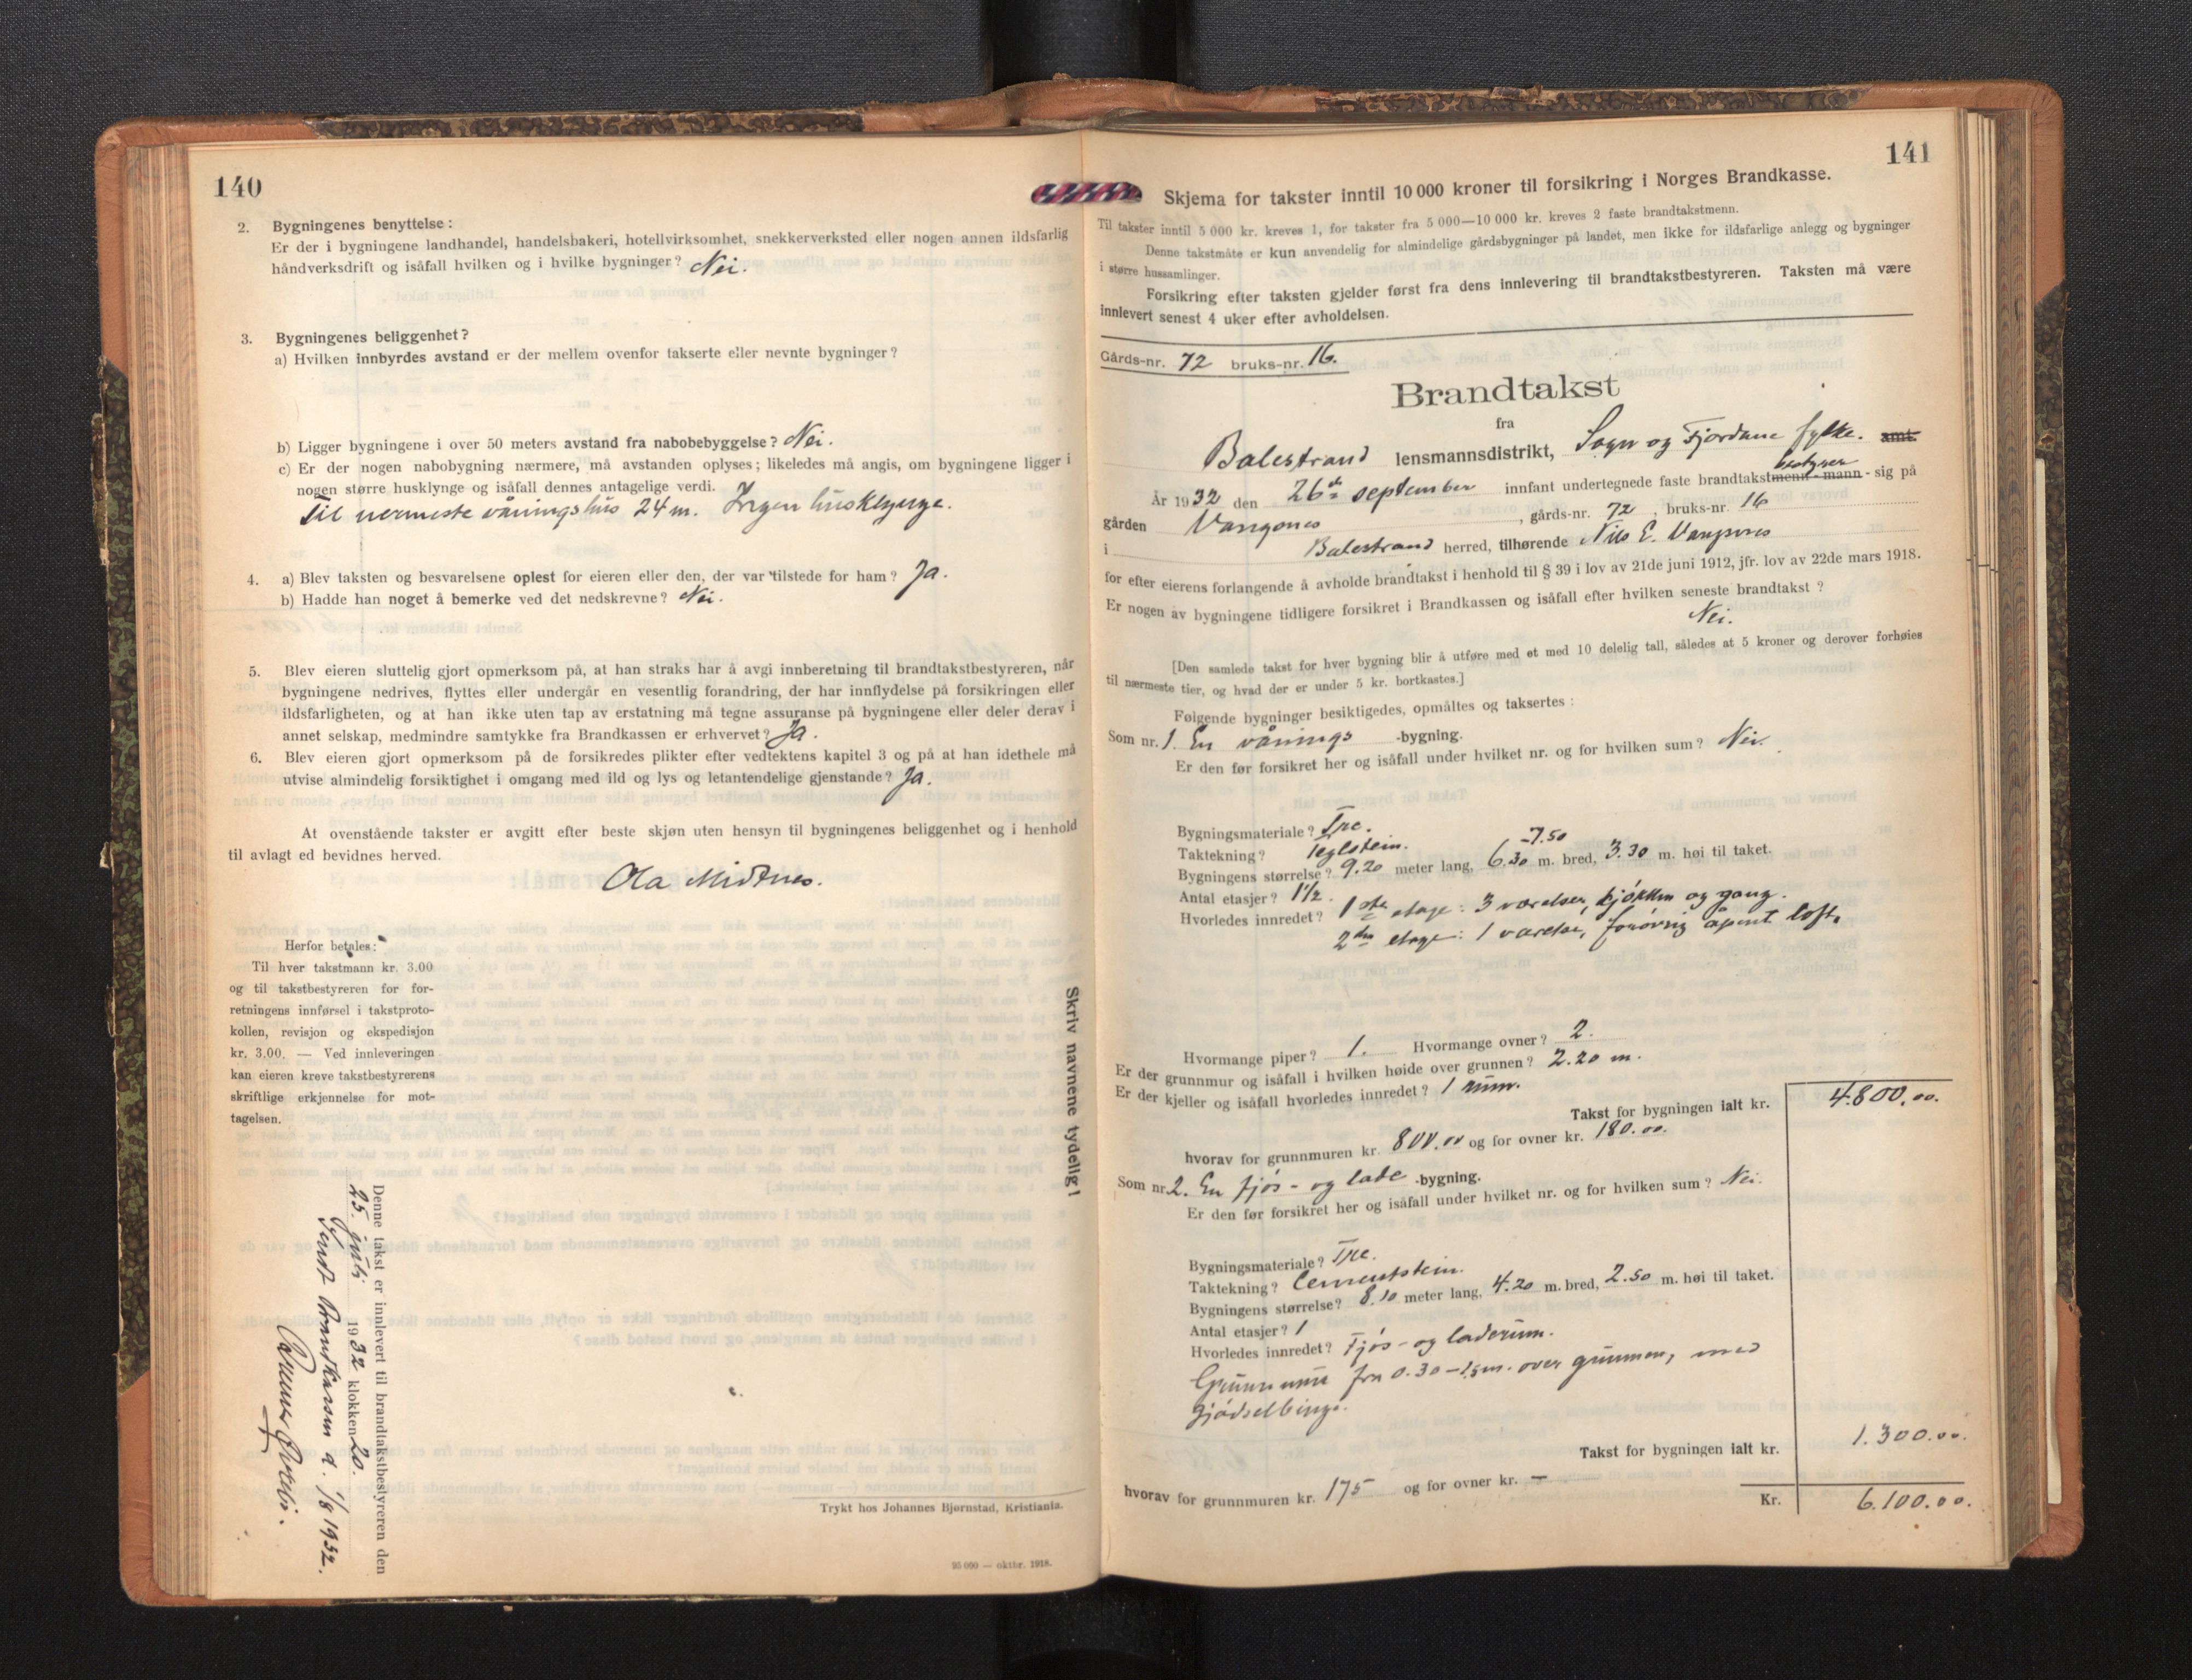 140
2. Bygningenes benyttelse:
Er der i bygningene landhandel, handelsbakeri, hotellvirksomhet, snekkerverksted eller nogen annen ildsfarlig
håndverksdrift og isåfall hvilken og i hvilke bygninger? Nei.
3. Bygningenes beliggenhet?
a) Hvilken innbyrdes avstand er der mellem ovenfor takserte eller nevnte bygninger?
b) Ligger bygningene i over 50 meters avstand fra nabobebyggelse? Nei.
c) Er der nogen nabobygning nærmere, må avstanden oplyses; likeledes må angis, om bygningene ligger i
nogen større husklynge og isåfall dennes antagelige verdi.
Til nermeste våningshus 24 m. Ingen husklynge.
4. a) Blev taksten og besvarelsene oplest for eieren eller den, der var tilstede for ham? Ja.
b) Hadde han noget å bemerke ved det nedskrevne? Nei.
5. Blev eieren sluttelig gjort opmerksom på, at han straks har å avgi innberetning til brandtakstbestyreren, når
bygningene nedrives, flyttes eller undergår en vesentlig forandring, der har innflydelse på forsikringen eller
ildsfarligheten, og at han ikke uten tap av erstatning må tegne assuranse på bygningene eller deler derav i
annet selskap, medmindre samtykke fra Brandkassen er erhvervet? Ja.
6. Blev eieren gjort opmerksom på de forsikredes plikter efter vedtektens kapitel 3 og på at han idethele må
utvise almindelig forsiktighet i omgang med ild og lys og letantendelige gjenstande? Ja.
At ovenstående takster er avgitt efter beste skjøn uten hensyn til bygningenes beliggenhet og i henhold
til avlagt ed bevidnes herved.
Ola Midtnes.
Herfor betales:
Til hver takstmann kr. 3.00
og til takstbestyreren for for-
retningens innførsel i takstproto-
kollen, revisjon og ekspedisjon
kr. 3.00. — Ved innleveringen
kan eieren kreve takstbestyrerens
skriftlige erkjennelse for mot-
tagelsen.
Skriv navnene tydelig!
Denne takst er innlevert til brandtakstbestyreren den
25. juli 1932 klokken 20.
Sendt Brandkassen d. 1/8 1932.
Trykt hos Johannes Bjørnstad, Kristiania.
95 000 — oktbr. 1918.
141
Skjema for takster inntil 10 000 kroner til forsikring i Norges Brandkasse.
Til takster inntil 5 000 kr. kreves 1, for takster fra 5 000—10 000 kr. kreves 2 faste brandtakstmenn.
Denne takstmåte er kun anvendelig for almindelige gårdsbygninger på landet, men ikke for ildsfarlige anlegg og bygninger
i større hussamlinger.
Forsikring efter taksten gjelder først fra dens innlevering til brandtakstbestyreren. Taksten må være
innlevert senest 4 uker efter avholdelsen.
Gårds-nr. 72 bruks-nr. 16.
Brandtakst
fra
Balestrand lensmannsdistrikt, Sogn og Fjordane fylke. amt.
bestyrer
År 1932 den 26de september innfant undertegnede faste brandtakstmenn - mann - sig på
gården Vangsnes, gårds-nr. 72, bruks-nr. 16
i Balestrand herred, tilhørende Nils E. Vangsnes
for efter eierens forlangende å avholde brandtakst i henhold til § 39 i lov av 21de juni 1912, jfr. lov av 22de mars 1918.
Er nogen av bygningene tidligere forsikret i Brandkassen og isåfall efter hvilken seneste brandtakst?
Nei.
[Den samlede takst for hver bygning blir å utføre med et med 10 delelig tall, således at 5 kroner og derover forhøies
til nærmeste tier, og hvad der er under 5 kr. bortkastes.]
Følgende bygninger besiktigedes, opmåltes og taksertes:
Som nr. 1. En vånings -bygning.
Er den før forsikret her og isåfall under hvilket nr. og for hvilken sum? Nei.
Bygningsmateriale? Tre.
Taktekning? Teglstein.
Bygningens størrelse? 9.20 meter lang, 6.30 -7.50 m. bred, 3.30 m. høi til taket.
Antal etasjer? 1½.
Hvorledes innredet? 1ste etage: 3 værelser, kjøkken og gang.
2den etage: 1 værelse, forøvrig åpent loft.
Hvormange piper? 1. Hvormange ovner? 2.
Er der grunnmur og isåfall i hvilken høide over grunnen? 2.20 m.
Er der kjeller og isåfall hvorledes innredet? 1 rum.
Takst for bygningen ialt kr. 4.800.00.
hvorav for grunnmuren kr. 800.00 og for ovner kr. 180.00.
Som nr. 2. En fjøs- og lade -bygning.
Er den før forsikret her og isåfall under hvilket nr. og for hvilken sum? Nei.
Bygningsmateriale? Tre.
Taktekning? Cementstein.
Bygningens størrelse? 8.10 meter lang, 4.20 m. bred, 2.50 m. høi til taket.
Antal etasjer? 1
Hvorledes innredet? Fjøs- og laderum.
Grunnmur fra 0.30 - 1,5 m. over grunnen, med
gjødselbinge.
Takst for bygningen ialt kr. 1.300.00.
hvorav for grunnmuren kr. 175 og for ovner kr. —
Kr. 6.100.00.